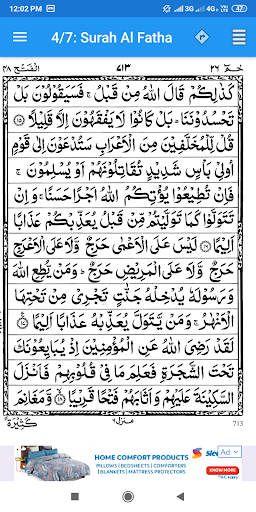 12:02 PM
3G 4G 42
4/7: Surah Al Fatha
الفتح ٤٨
٧١٣
حٰمٓ ٢٦
كَذٰلِكُمْ قَالَ اللّٰهُ مِنْ قَبْلُ ۚ فَسَيَقُوْلُوْنَ بَلْ
تَحْسُدُوْنَنَا ؕ بَلْ كَانُوْا لَا يَفْقَهُوْنَ اِلَّا قَلِيْلًا ﴿۱۵﴾
قُلْ لِّلْمُخَلَّفِيْنَ مِنَ الْاَعْرَابِ سَتُدْعَوْنَ اِلٰى قَوْمٍ
اُولِيْ بَاْسٍ شَدِيْدٍ تُقَاتِلُوْنَهُمْ اَوْ يُسْلِمُوْنَ ۚ
فَاِنْ تُطِيْعُوْا يُؤْتِكُمُ اللّٰهُ اَجْرًا حَسَنًا ۚ وَاِنْ
تَتَوَلَّوْا كَمَا تَوَلَّيْتُمْ مِّنْ قَبْلُ يُعَذِّبْكُمْ عَذَابًا
اَلِيْمًا ﴿۱۶﴾ لَيْسَ عَلَى الْاَعْمٰى حَرَجٌ وَّلَا عَلَى الْاَعْرَجِ
حَرَجٌ وَّلَا عَلَى الْمَرِيْضِ حَرَجٌ ؕ وَمَنْ يُّطِعِ اللّٰهَ
وَرَسُوْلَهٗ يُدْخِلْهُ جَنّٰتٍ تَجْرِيْ مِنْ تَحْتِهَا
الْاَنْهٰرُ ۚ وَمَنْ يَّتَوَلَّ يُعَذِّبْهُ عَذَابًا اَلِيْمًا ﴿۱۷﴾
لَقَدْ رَضِيَ اللّٰهُ عَنِ الْمُؤْمِنِيْنَ اِذْ يُبَايِعُوْنَكَ
تَحْتَ الشَّجَرَةِ فَعَلِمَ مَا فِيْ قُلُوْبِهِمْ فَاَنْزَلَ
السَّكِيْنَةَ عَلَيْهِمْ وَاَثَابَهُمْ فَتْحًا قَرِيْبًا ﴿۱۸﴾ وَّمَغَانِمَ
كَثِيْرَةً
منزل ٦
713
HOME COMFORT PRODUCTS
PILLOWS | BEDSHEETS | COMFORTERS
| BLANKETS | MATTRESS PROTECTORS
Ad
KNOW MORE